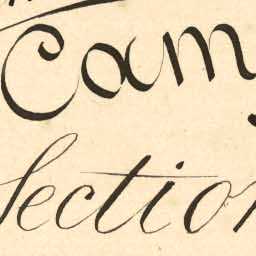 Cam
Section